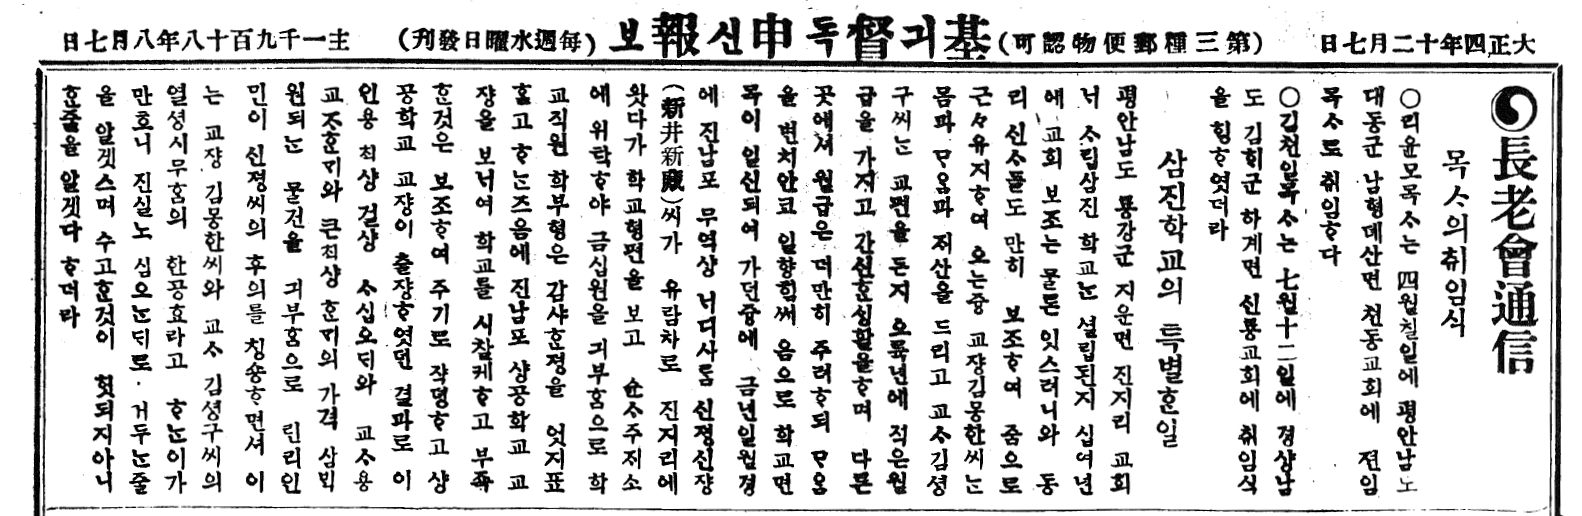 大正四年十二月七日 (第三種郵便物認可) 基긔督독申신報보 (每週水曜日發刊) 主一千九百十八年八月七日
長老會通信
목ᄉᆞ의취임식
○리윤모목ᄉᆞ는 四월칠일에 평안남도
대동군 남형뎨산면 쳔동교회에 젼임
목ᄉᆞ로 취임ᄒᆞ다
○김쳔일목ᄉᆞ는 七월十二일에 경샹남
도 김ᄒᆡ군 하계면 신룡교회에 취임식
을 ᄒᆡᆼᄒᆞ엿더라
삼진학교의 특별ᄒᆞᆫ일
평안남도 룡강군 지운면 진지리 교회
ᄂᆡ ᄉᆞ립삼진 학교ᄂᆞᆫ 셜립된지 십여년
에 교회 보조는 물론 잇스려니와 동
리 신ᄉᆞ들도 만히 보조ᄒᆞ여 줌으로
근々유지ᄒᆞ여 오는즁 교쟝김몽한씨ᄂᆞᆫ
몸과 ᄆᆞᄋᆞᆷ과 ᄌᆡ산을 드리고 교ᄉᆞ김셩
구씨ᄂᆞᆫ 교편을 든지 오륙년에 적은월
급을 가지고 간신ᄒᆞᆫᄉᆡᆼ활을ᄒᆞ며 다른
곳에셔 월급은 더만히 주려ᄒᆞ되 ᄆᆞᄋᆞᆷ
을 변치안코 일향힘써 옴으로 학교면
목이 일신되여 가던즁에 금년일월경
에 진남포 무역상 ᄂᆡ디사ᄅᆞᆷ 신졍신쟝
(新井新藏)씨가 유람차로 진지리에
왓다가 학교형편을 보고 순ᄉᆞ주ᄌᆡ소
에 위탁ᄒᆞ야 금십원을 긔부ᄒᆞᆷ으로 학
교직원 학부형은 감샤ᄒᆞᆫ졍을 엇지표
ᄒᆞᆯ고 ᄒᆞᄂᆞᆫ즈음에 진남포 샹공학교 교
쟝을 보ᄂᆡ여 학교를 시찰케ᄒᆞ고 부족
ᄒᆞᆫ것은 보조ᄒᆞ여 주기로 작뎡ᄒᆞ고 샹
공학교 교쟝이 츌쟝ᄒᆞ엿던 결과로 이
인용 ᄎᆡᆨ샹 걸샹 ᄉᆞ십오ᄃᆡ와 교ᄉᆞ용
교ᄌᆞᄒᆞᆫᄀᆡ와 큰ᄎᆡᆨ샹 ᄒᆞᆫᄀᆡ의 가격 삼ᄇᆡᆨ
원되ᄂᆞᆫ 물건을 긔부ᄒᆞᆷ으로 린리인
민이 신졍씨의 후의를 칭숑ᄒᆞ면셔 이
는 교쟝 김몽한씨와 교ᄉᆞ 김셩구씨의
열셩시무ᄒᆞᆷ의 한공효라고 ᄒᆞᄂᆞᆫ이가
만흐니 진실노 심오ᄂᆞᆫᄃᆡ로 거두ᄂᆞᆫ줄
을 알겟스며 수고ᄒᆞᆫ것이 헛되지아니
ᄒᆞᆫ줄을 알겟다 ᄒᆞ더라